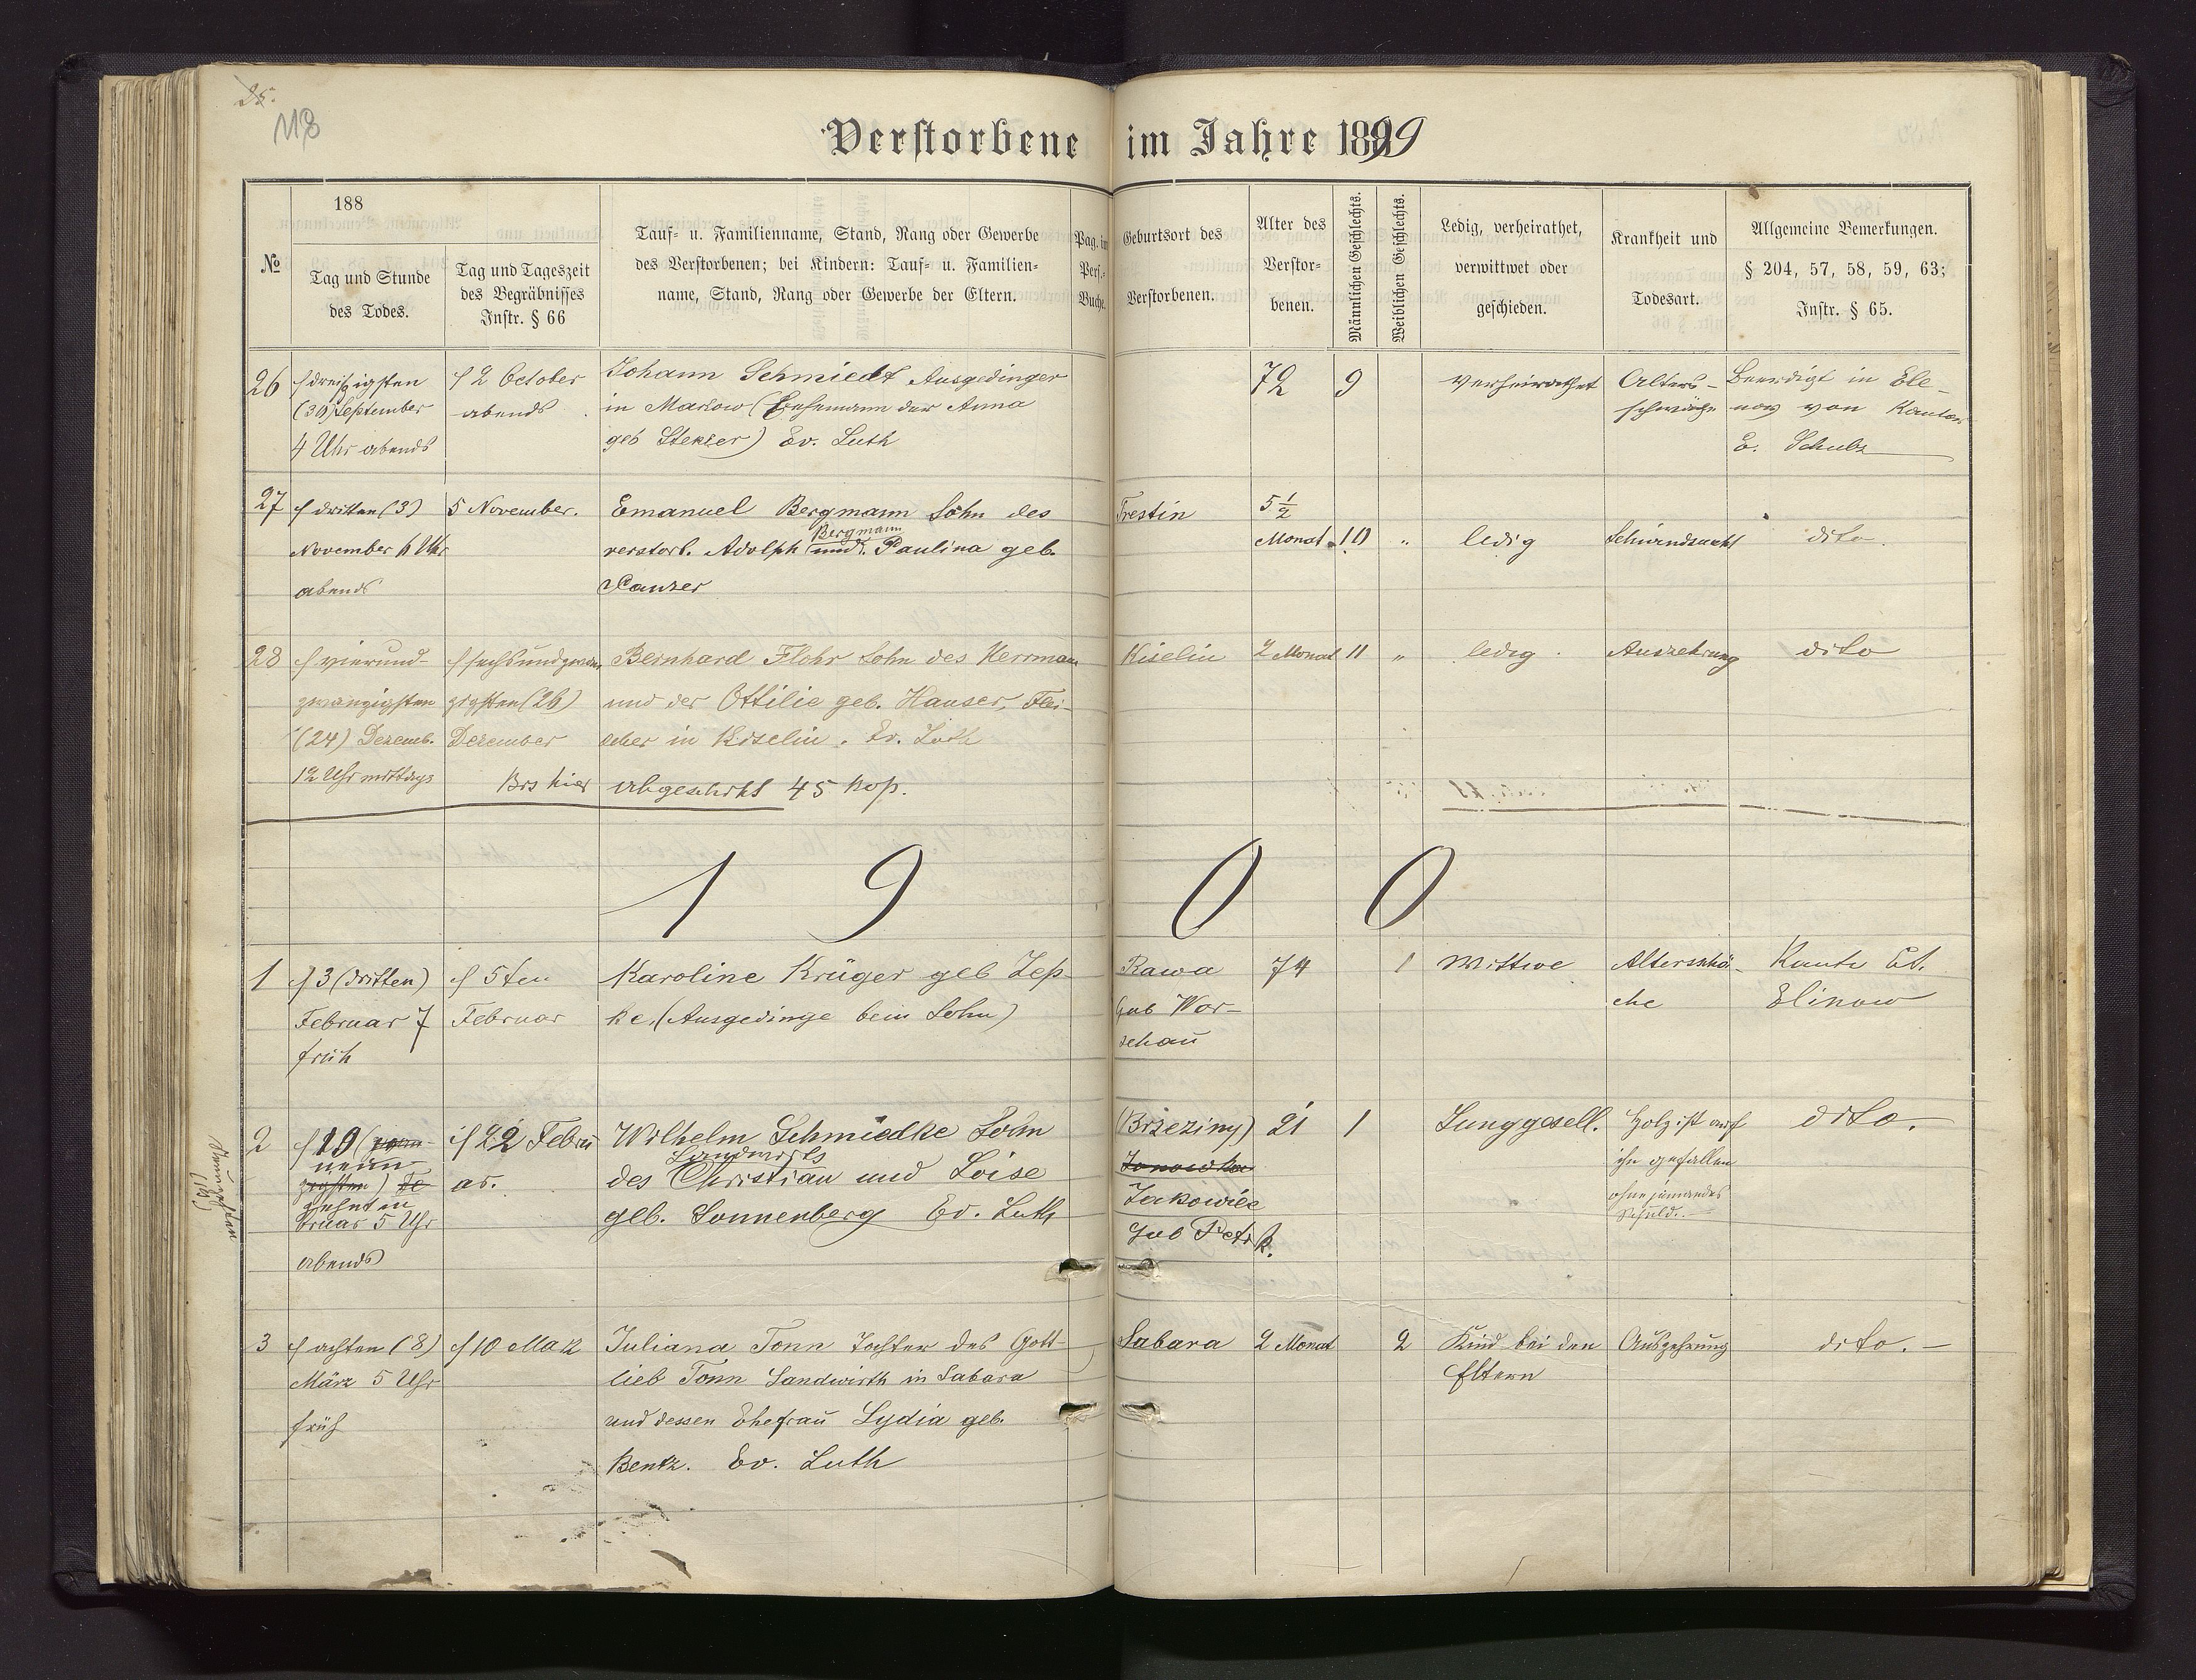 25.
118
Verstorbene im Jahre 1899
№
188
Tag und Stunde
des Todes.
Tag und Tageszeit
des Begräbnisses
Instr. § 66
Tauf- u. Familienname, Stand, Rang oder Gewerbe
des Verstorbenen; bei Kindern: Tauf- u. Familien-
name, Stand, Rang oder Gewerbe der Eltern.
Pag. im
Pers.-
Buche.
Geburtsort des
Verstorbenen.
Alter des
Verstor-
benen.
Männlichen Geschlechts.
Weiblichen Geschlechts.
Ledig, verheirathet,
verwittwet oder
geschieden.
Krankheit und
Todesart.
Allgemeine Bemerkungen.
§ 204, 57, 58, 59, 63;
Instr. § 65.
26
dreißigsten
(30) September
4 Uhr abends
2 October
abends
Johann Schmiedt Ausgedinger
in Markow (Ehemann der Anna
geb Stekzer) Ev. Luth
72
9
verheirathet
Alters-
schwäche
Beerdigt in Ele-
now von Kantor
E. Schulz
27
dritten (3)
November 6 Uhr
abends
5 November.
Emanuel Bergmann Sohn des
Bergmann
verstorb. Adolph und. Paulina geb.
Panzer
Trestin
5 1/2
Monat
10
"
ledig
Schwindsucht
dito.
28
vierund-
zwanzigsten
(24) Dezemb.
12 Uhr mittags
sechsundzwan
zigsten (26)
Dezember
Bernhard Flohr Sohn des Herrmann
und der Ottilie geb. Hauser, Flei-
scher in Kiselin. Ev. Luth
Bis hier abgeschikt 45 kop.
Kiselin
2 Monat
11
"
ledig
Auszehrung
dito
1900
1
3 (dritten)
Februar 7
früh
5ten
Februar
Karoline Krüger geb Zep-
ke, (Ausgedinge bein Sohn)
Rawa
Gub War-
schau
74
1
Wittwe
Altersschwä-
che
Kant
Elinow
2
19 (
neun-
zehnten
bruar 5 Uhr
abends
Neunzehnten
(19)
22 Febru
ar.
Wilhelm Schmiedke Sohn
Landwirts
des Christian und Loise
geb. Sonnenberg Ev. Luth
(Brzeziny)
Janowka
Jakowiec
Gub Petrk.
21
1
Junggesell.
Holz ist auf
ihn gefallen
ohne jemandes
Schuld.
dito.
3
achten (8)
März 5 Uhr
früh
10 März
Juliana Tonn Tochter des Gott-
lieb Tonn Landwirth in Sabara
und dessen Ehefrau Lydia geb.
Bentz. Ev. Luth
Sabara
2 Monat
2
Kind bei den
Eltern
Auszehrung
dito.